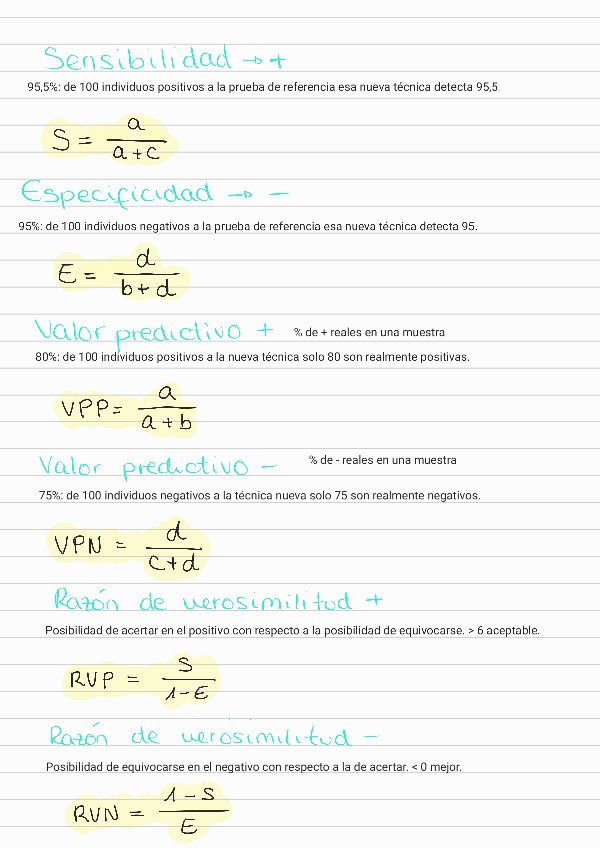 Sensibilidad → +
95,5%: de 100 individuos positivos a la prueba de referencia esa nueva técnica detecta 95,5
S = a / a+c
Especificidad → -
95%: de 100 individuos negativos a la prueba de referencia esa nueva técnica detecta 95.
E = d / b+d
Valor predictivo + % de + reales en una muestra
80%: de 100 individuos positivos a la nueva técnica solo 80 son realmente positivas.
VPP= a / a+b
Valor predictivo - % de - reales en una muestra
75%: de 100 individuos negativos a la técnica nueva solo 75 son realmente negativos.
VPN = d / c+d
Razón de verosimilitud +
Posibilidad de acertar en el positivo con respecto a la posibilidad de equivocarse. > 6 aceptable.
RVP = S / 1-E
Razón de verosimilitud -
Posibilidad de equivocarse en el negativo con respecto a la de acertar. < 0 mejor.
RVN = 1-S / E